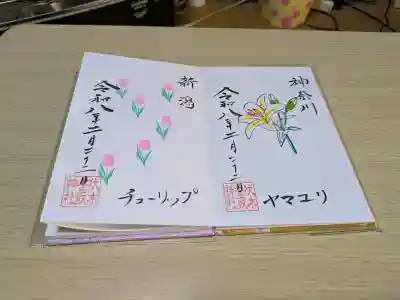 神奈川
令和八年二月二十二日
ヤマユリ
新潟
令和八年二月二十二日
チューリップ